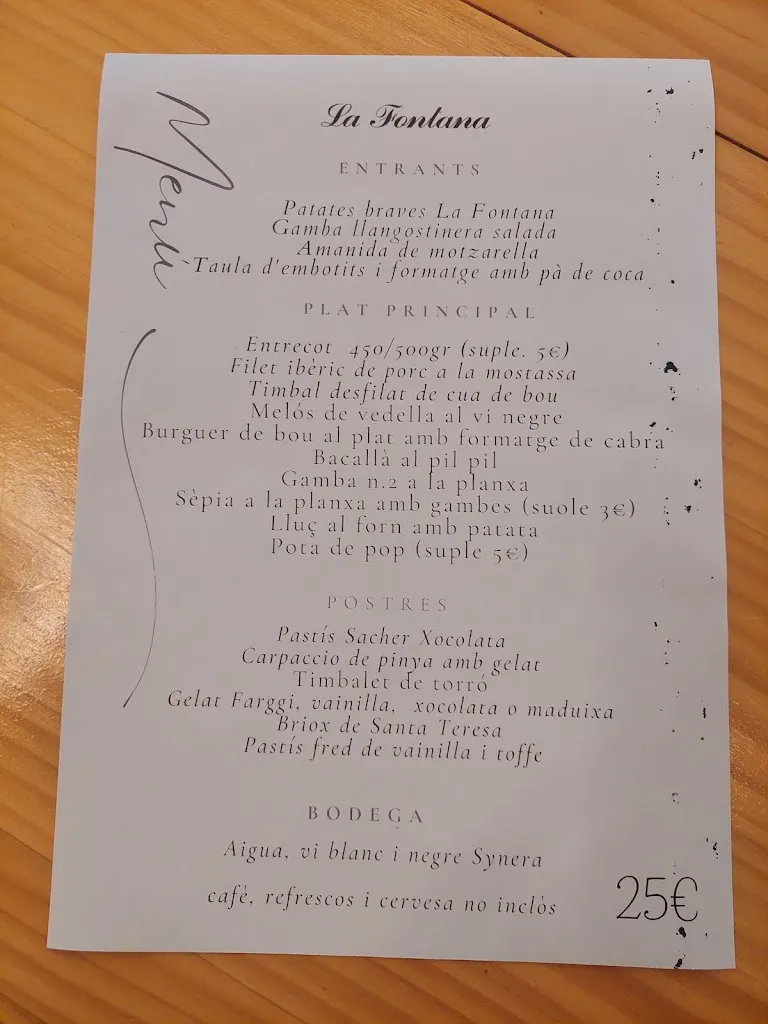 Menú
La Fontana
ENTRANTS
Patates braves La Fontana
Gamba llangostinera salada
Amanida de motzarella
Taula d'embotits i formatge amb pà de coca
PLAT PRINCIPAL
Entrecot 450/500gr (suple. 5€)
Filet ibèric de porc a la mostassa
Timbal desfilat de cua de bou
Melós de vedella al vi negre
Burguer de bou al plat amb formatge de cabra
Bacallà al pil pil
Gamba n.2 a la planxa
Sèpia a la planxa amb gambes (suole 3€)
Lluç al forn amb patata
Pota de pop (suple 5€)
POSTRES
Pastís Sacher Xocolata
Carpaccio de pinya amb gelat
Timbalet de torró
Gelat Farggi, vainilla, xocolata o maduixa
Briox de Santa Teresa
Pastís fred de vainilla i toffe
BODEGA
Aigua, vi blanc i negre Synera
cafè, refrescos i cervesa no inclòs
25€